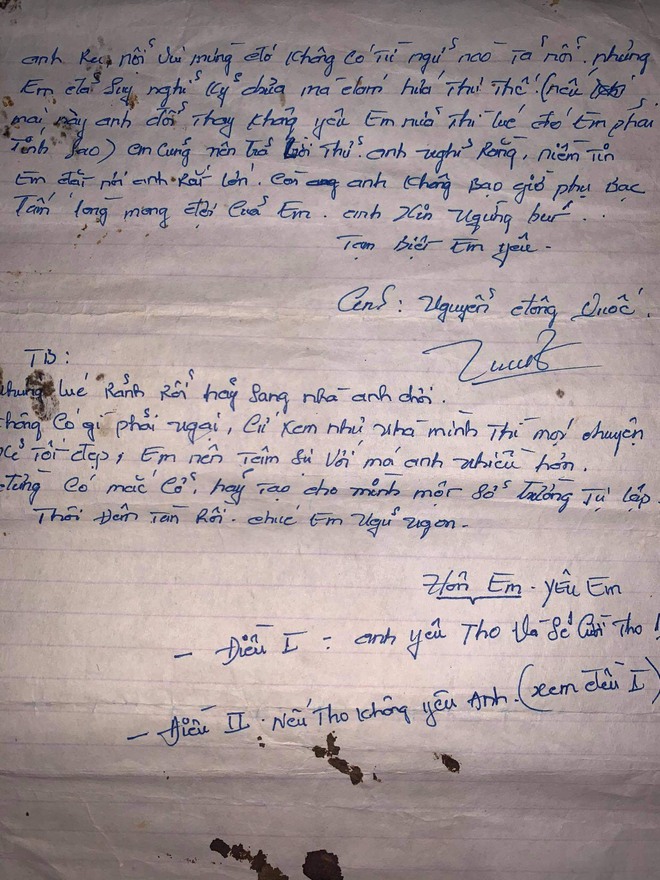 anh reo nổi vui mừng đó không có từ ngữ nào tả nổi. nhưng
Em đã suy nghĩ kỹ chưa mà dám hứa thư thế. (nếu
mai này anh đổi thay không yêu Em nữa thì lúc đó Em phải
Tính sao) em cũng nên trả lời thử. anh nghĩ rằng, niềm tin
Em đối với anh rất lớn. còn anh không bao giờ phụ bạc
Tấm lòng mong đợi của Em. anh xin ngừng bút...
Tạm biệt Em yêu -
Anh: Nguyễn đông Quốc.
TB:
những lúc rảnh rỗi hãy sang nhà anh chơi.
không có gì phải ngại, cứ xem như nhà mình thì mọi chuyện
sẽ tốt đẹp, Em nên tâm sự với má anh nhiều hơn.
đừng có mắc cỡ, hãy tạo cho mình một sở trường tự lập.
Thôi đêm tàn rồi. chúc Em ngủ ngon -
Hôn Em. yêu Em
- Điều I : anh yêu Tho và sẽ cưới Tho !
- Điều II. Nếu Tho không yêu Anh. (xem điều I)